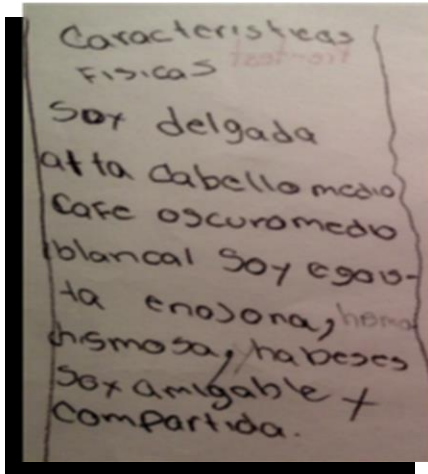 Caracteristicas
Fisicas
Soy delgada
alta cabello medio
cafe oscuro medio
blanca Soy egois-
ta enojona,
hismosa, y habeses
Soy amigable y
compartida.